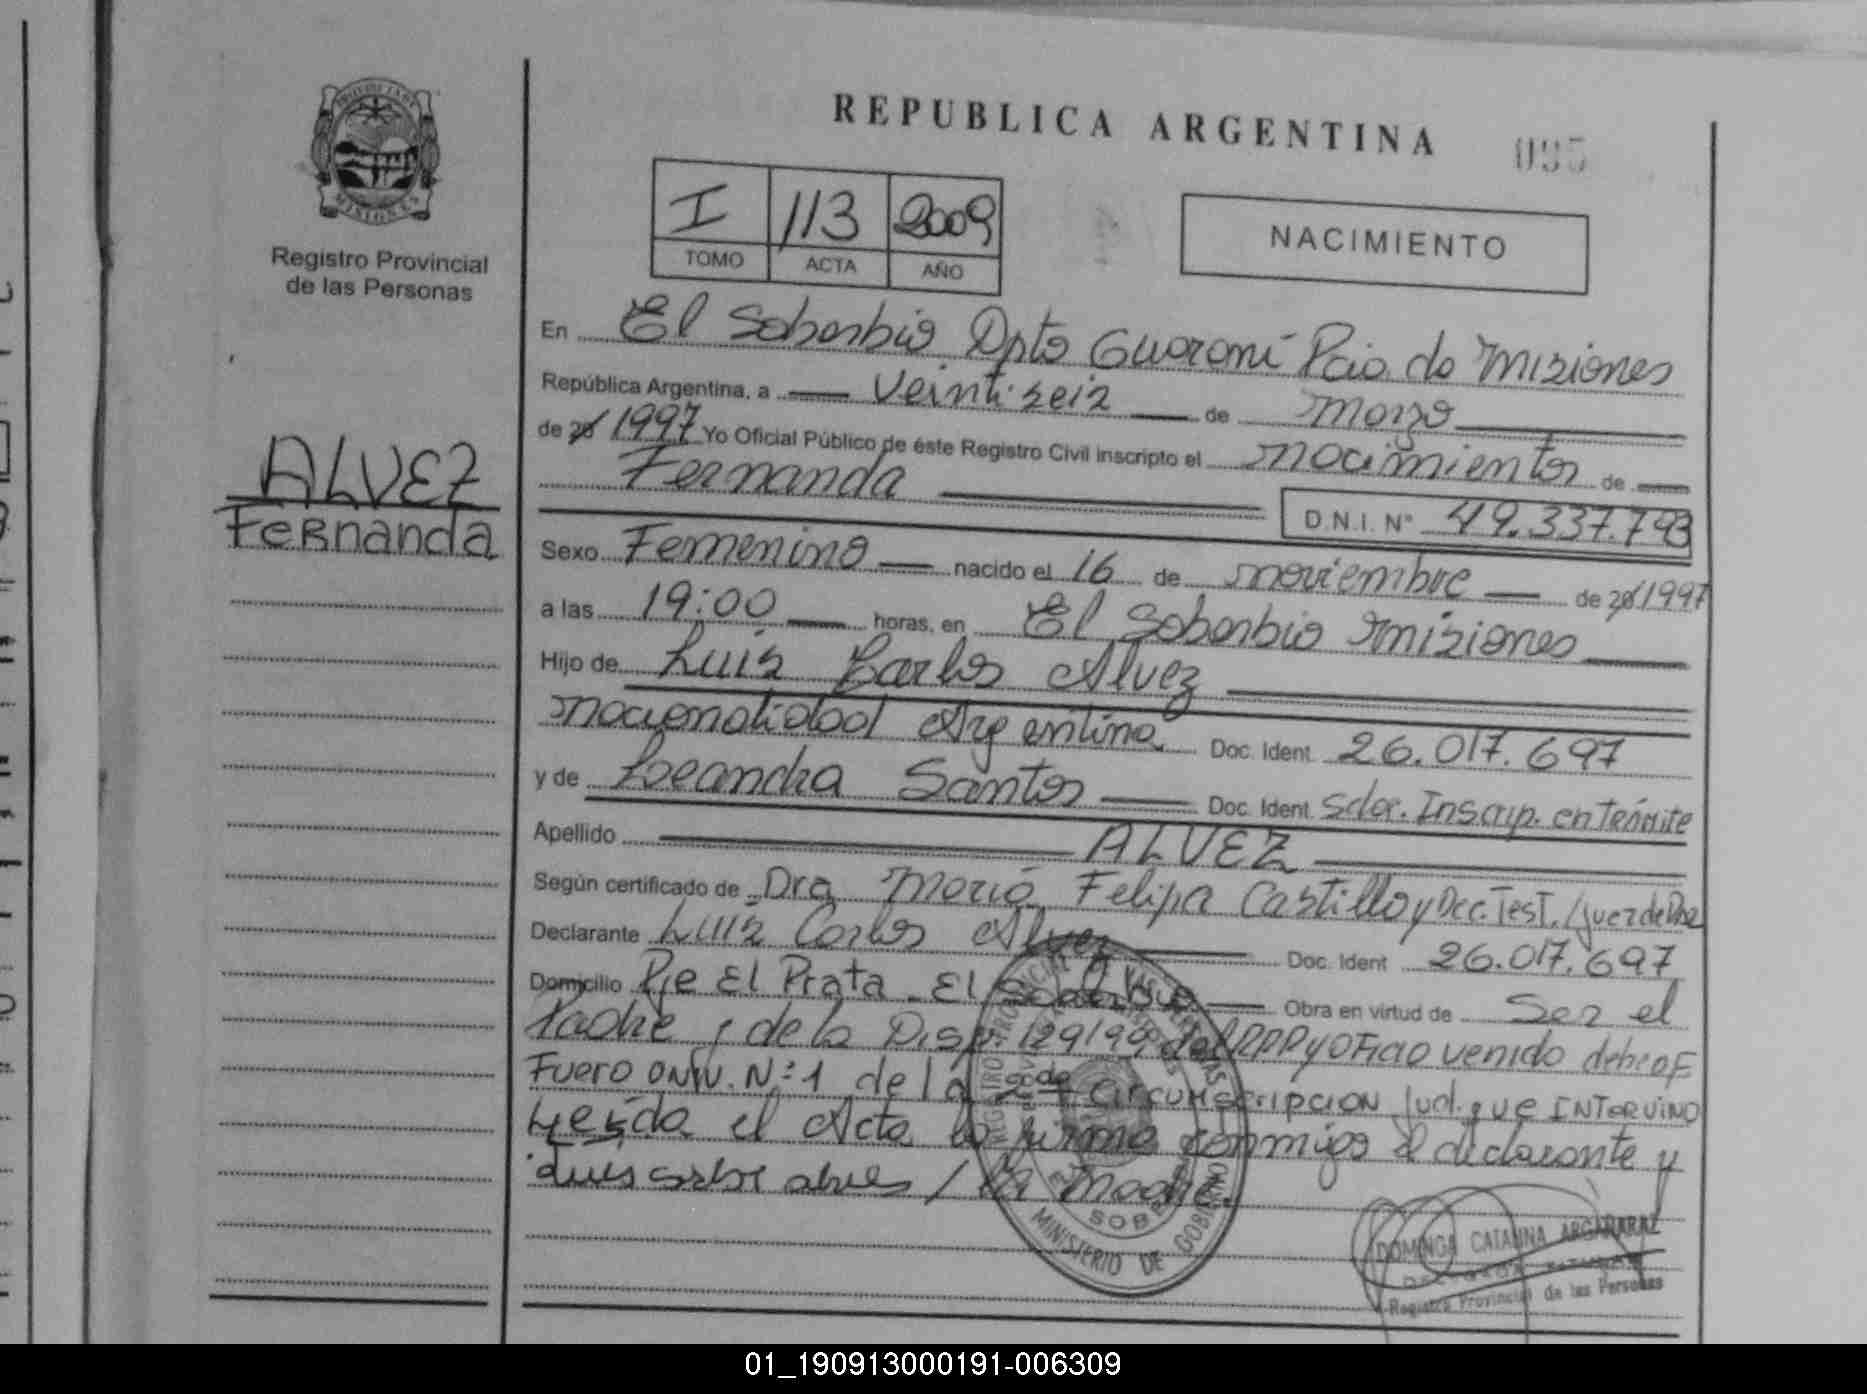 REPUBLICA ARGENTINA
095
PROVINCIA DE
MISIONES
Registro Provincial
de las Personas
I 113 2009
TOMO ACTA AÑO
NACIMIENTO
ALVEZ
Fernanda
En El Soberbio Dpto Guaraní Pcia de Misiones
República Argentina, a veintiseis de Marzo
de 20 1997 Yo Oficial Público de éste Registro Civil inscripto el nacimiento de
Fernanda
D.N.I. N° 49.337.793
Sexo Femenino nacido el 16 de noviembre de 20 1997
a las 19:00 horas, en El Soberbio Misiones
Hijo de Luis Carlos Alvez
nacionalidad Argentina Doc. Ident. 26.017.697
y de Leandra Santos Doc. Ident. Inscrip. en Trámite
Apellido ALVEZ
Según certificado de Dra María Felipa Castillo y Dec. Test. Juez de Paz
Declarante Luis Carlos Alvez Doc. Ident 26.017.697
Domicilio Pje El Prata - El Soberbio Obra en virtud de Ser el
Padre y de la Disp. 129/99 del RPP y Oficio venido de
Fuero N°1 de la 2da circunscripcion Jud. que Intervino
Leída el Acta la firma conmigo el declarante y
/ la madre.
MINISTERIO DE GOBIERNO
DOMINGA CATALINA ARGAÑARAZ
Registro Provincial de las Personas
01_190913000191-006309